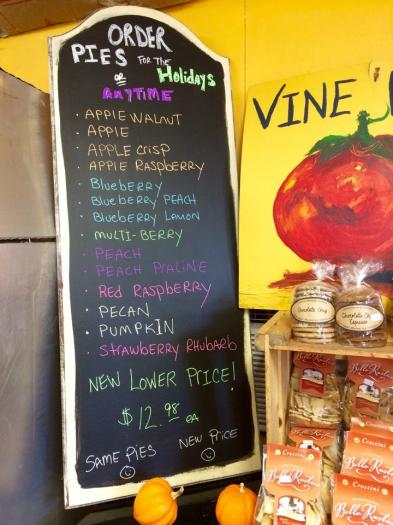 ORDER
PIES FOR THE Holidays
OR
ANYTIME
· APPLE WALNUT
· APPLE
· APPLE CRISP
· APPLE RASPBERRY
· Blueberry
· Blueberry PEACH
· Blueberry Lemon
· MULTI-BERRY
· PEACH
· PEACH PRALINE
· RED RASPBERRY
· PECAN
· PUMPKIN
· STRAWBERRY RHUBARB
NEW LOWER PRICE!
$12.98 ea
SAME PIES
NEW PRICE
VINE
Chocolate Chip
Chocolate Chip
Espresso
Crostini
Crostini
Crostini
Crostini